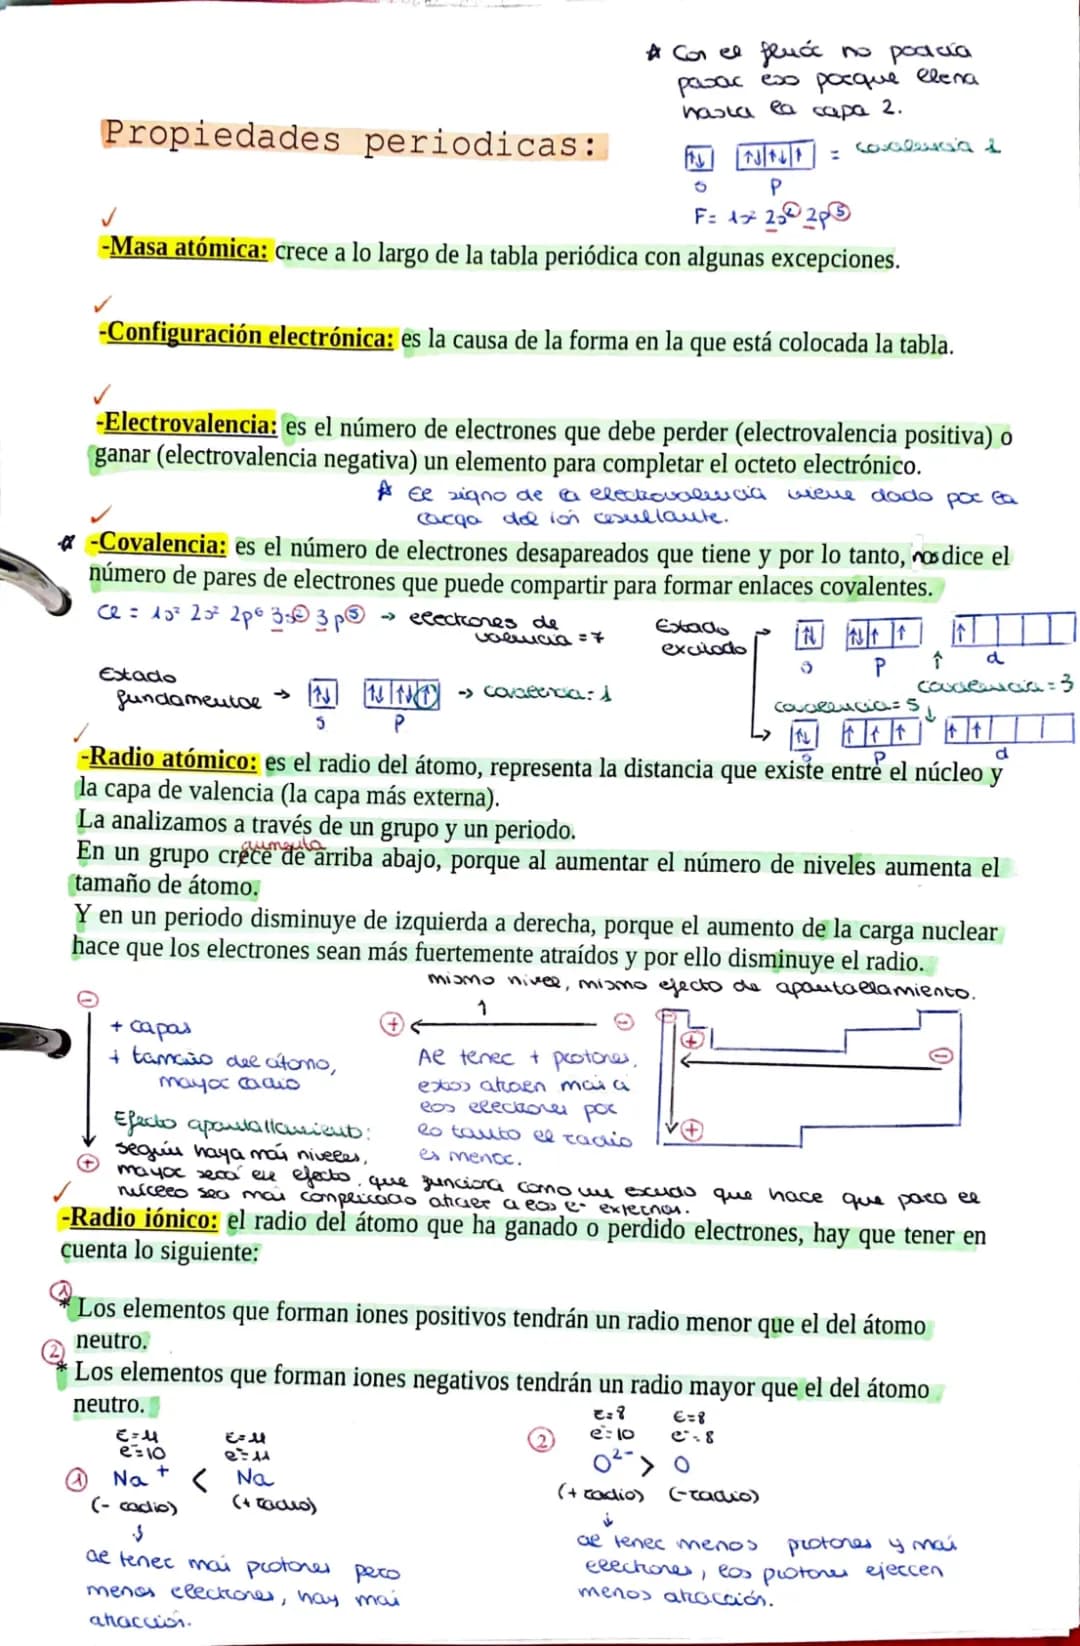 * Con el fluór no podría
pasar eso porque llena
hasta la capa 2.
Propiedades periodicas:
↑↓ ↑↓ ↑↓ ↑ = covalencia 1
s p
F= 1s² 2s² 2p⁵
-Masa atómica: crece a lo largo de la tabla periódica con algunas excepciones.
-Configuración electrónica: es la causa de la forma en la que está colocada la tabla.
-Electrovalencia: es el número de electrones que debe perder (electrovalencia positiva) o
ganar (electrovalencia negativa) un elemento para completar el octeto electrónico.
* El signo de la electrovalencia viene dado por la
carga del ión resultante.
* -Covalencia: es el número de electrones desapareados que tiene y por lo tanto, nos dice el
número de pares de electrones que puede compartir para formar enlaces covalentes.
Cl = 1s² 2s² 2p⁶ 3s² 3p⁵ → electrones de
valencia = 7
Estado
excitado
↑↓ ↑↓ ↑ ↑ ↑
s p d
covalencia = 3
Estado
fundamental → ↑↓ ↑↓ ↑↓ ↑ → covalencia: 1
s p
covalencia = 5
↑↓ ↑ ↑ ↑ ↑ ↑
s p d
-Radio atómico: es el radio del átomo, representa la distancia que existe entre el núcleo y
la capa de valencia (la capa más externa).
La analizamos a través de un grupo y un periodo.
aumenta
En un grupo crece de arriba abajo, porque al aumentar el número de niveles aumenta el
tamaño de átomo.
Y en un periodo disminuye de izquierda a derecha, porque el aumento de la carga nuclear
hace que los electrones sean más fuertemente atraídos y por ello disminuye el radio.
mismo nivel, mismo efecto de apantallamiento.
+ capas
+ tamaño del átomo,
mayor radio
Al tener + protones,
estos atraen más a
los electrones por
lo tanto el radio
es menor.
Efecto apantallamiento:
según haya más niveles,
mayor será el efecto, que funciona como un escudo que hace que para el
núcleo sea más complicado atraer a los e⁻ externos.
-Radio iónico: el radio del átomo que ha ganado o perdido electrones, hay que tener en
cuenta lo siguiente:
1
* Los elementos que forman iones positivos tendrán un radio menor que el del átomo
neutro.
2
* Los elementos que forman iones negativos tendrán un radio mayor que el del átomo
neutro.
Z=11 Z=11
e⁻=10 e⁻=11
1 Na⁺ < Na
(- radio) (+ radio)
al tener más protones pero
menos electrones, hay más
atracción.
Z=8 Z=8
e⁻=10 e⁻=8
2 O²⁻ > O
(+ radio) (- radio)
al tener menos protones y más
electrones, los protones ejercen
menos atracción.